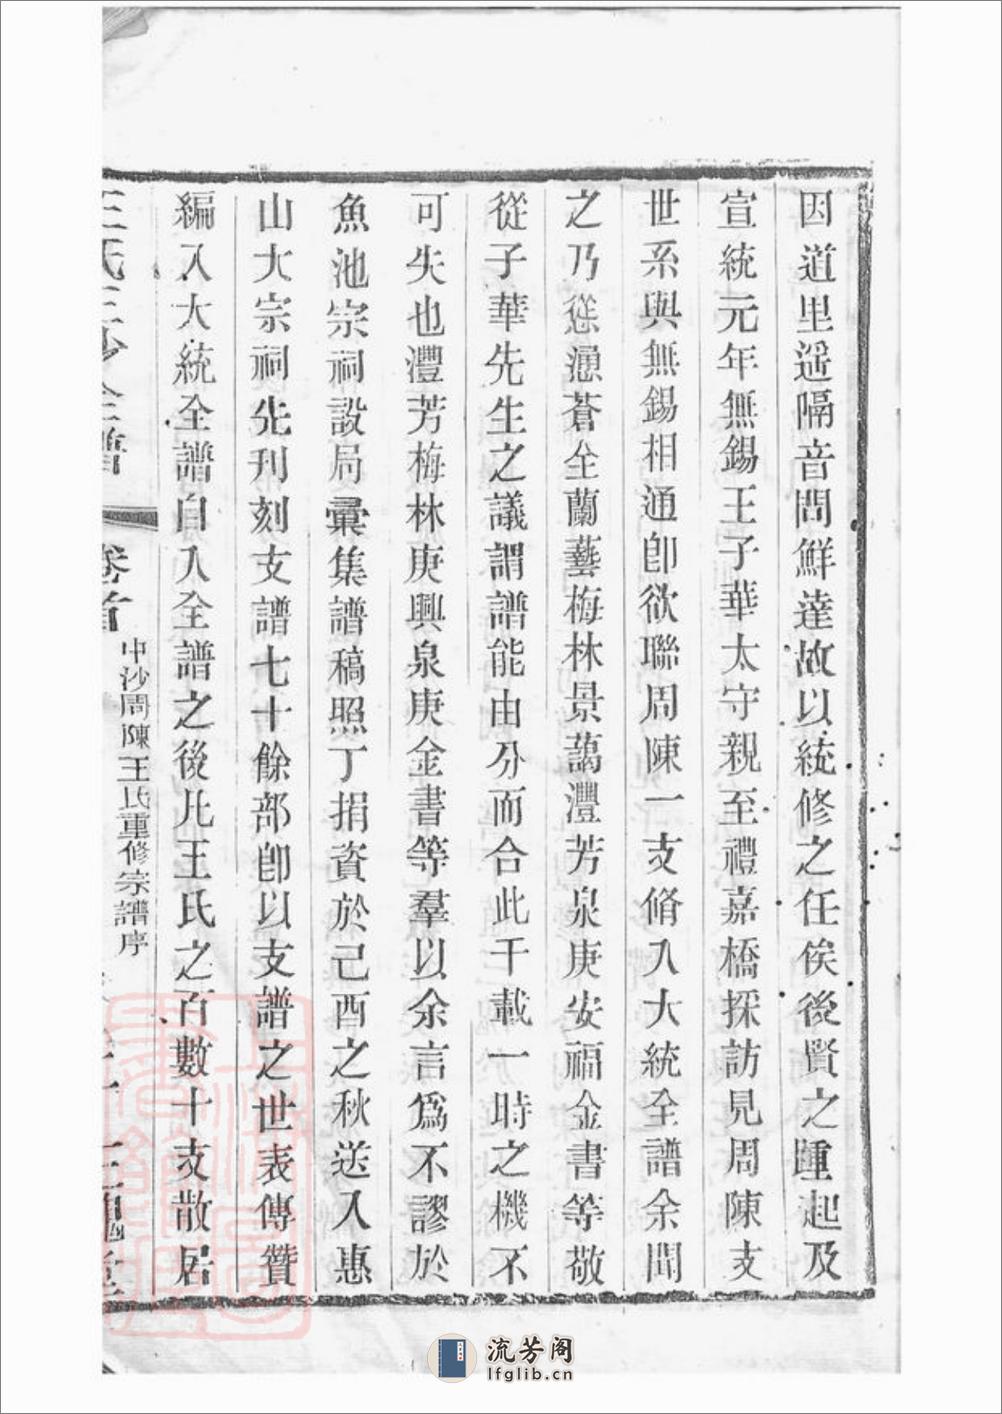 因道里遥隔音問鮮達故以統修之任俟後賢之踵起及
宣統元年無錫王子華太守親至禮嘉橋採訪見周陳支
世系與無錫相通卽欲聯周陳一支脩入大統全譜余聞
之乃慫慂蒼全蘭藝梅林景藹灃芳泉庚安福金書等敬
從子華先生之議謂譜能由分而合此千載一時之機不
可失也灃芳梅林庚興泉庚金書等羣以余言爲不謬於
魚池宗祠設局彙集譜稿照丁捐資於己酉之秋送入惠
山大宗祠先刋刻支譜七十餘部卽以支譜之世表傳贊
編入大統全譜自入全譜之後凡王氏之百數十支散居
王氏三沙全譜 卷首
中沙周陳王氏重修宗譜序
流芳阁
lfglib.cn